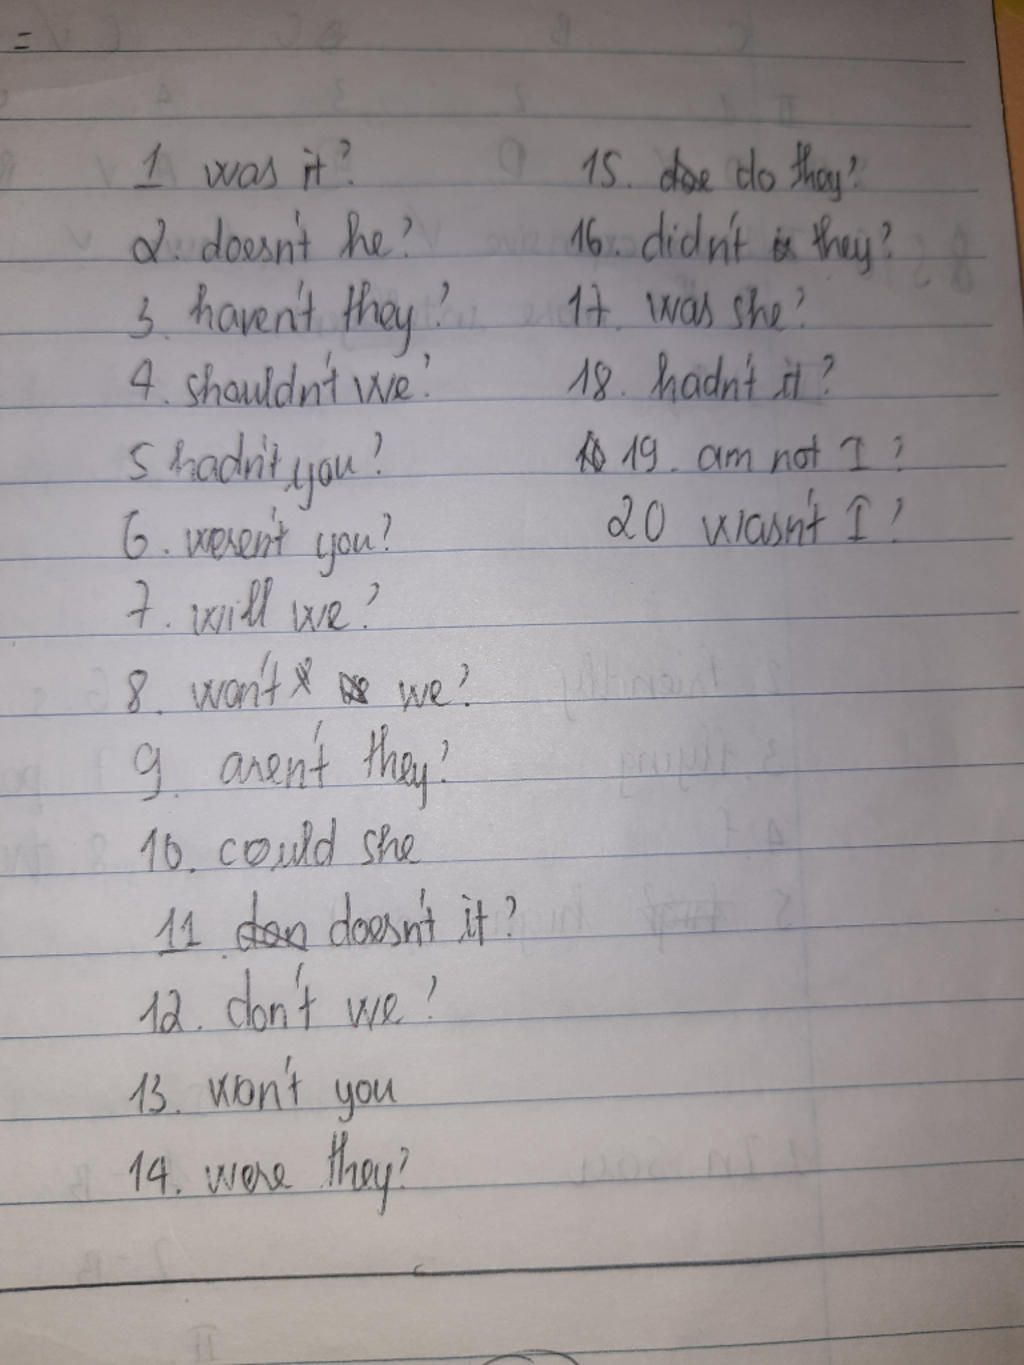 =
1 was it?
2. doesn't he?
3. haven't they?
4. shouldn't we?
5 hadn't you?
6. weren't you?
7. will we?
8. won't we?
9. aren't they?
10. could she
11. doesn't it?
12. don't we?
13. won't you
14. were they?
15. do they?
16. didn't they?
17. was she?
18. hadn't it?
19. am not I?
20 wasn't I?